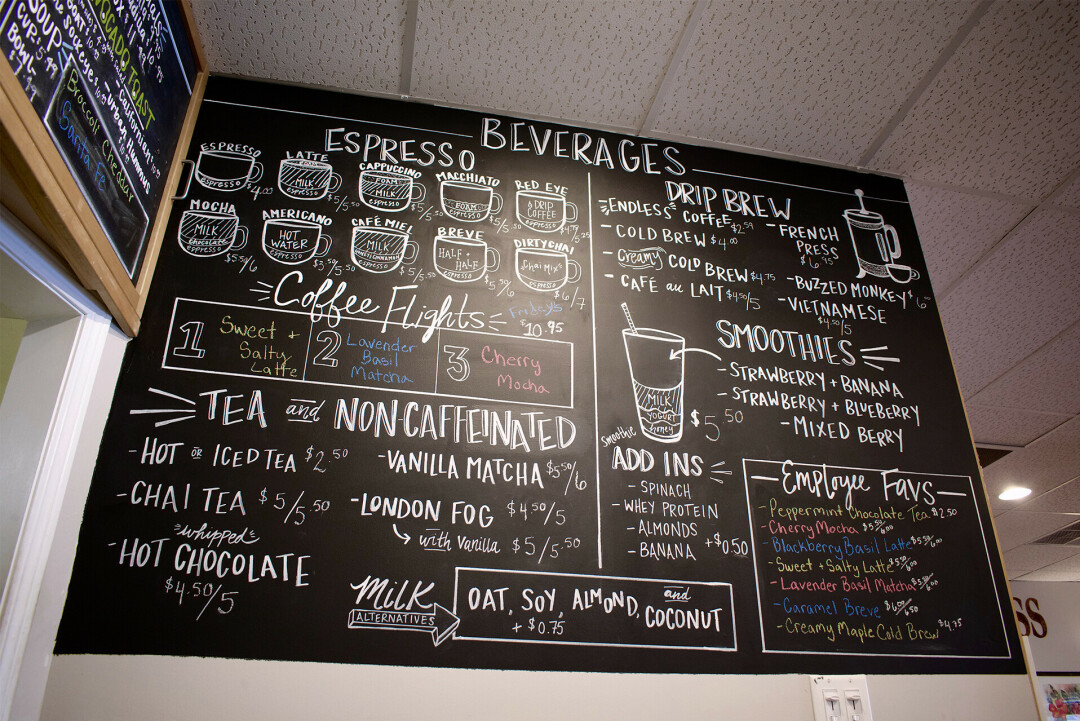 AVOCADO TOAST
SOUP
CUP - 5.99
BOWL -
- Californian
- Urban Hummus
Broccoli Cheddar
Santa Fe
BEVERAGES
ESPRESSO
ESPRESSO
$4.00
LATTE
FOAM
MILK
espresso
$5/5.50
CAPPUCCINO
FOAM
MILK
espresso
$5/5.50
MACCHIATO
FOAM
espresso
$5/5.50
RED EYE
DRIP
COFFEE
espresso
MOCHA
MILK
chocolate
espresso
$5.50/6
AMERICANO
HOT
WATER
espresso
CAFÉ MIEL
MILK
espresso
$5/5.50
BREVE
HALF +
HALF
espresso
$5.50/6
DIRTY CHAI
Chai Mix
espresso
$6/7
Coffee Flights
Fridays
$10.95
1 Sweet +
Salty
Latte
2 Lavender
Basil
Matcha
3 Cherry
Mocha
TEA and NON-CAFFEINATED
- HOT OR ICED TEA $2.50
- CHAI TEA $5/5.50
whipped
- HOT CHOCOLATE
$4.50/5
- VANILLA MATCHA $5.50/6
- LONDON FOG $4.50/5
with Vanilla $5/5.50
MILK
ALTERNATIVES
OAT, SOY, ALMOND, and COCONUT
+ $0.75
DRIP BREW
ENDLESS COFFEE $2.59
- COLD BREW $4.00
- Creamy COLD BREW $4.75
- CAFÉ au LAIT $4.50/5
- FRENCH
PRESS
$6.95
- BUZZED MONKEY
- VIETNAMESE
$4.50/5
SMOOTHIES
- STRAWBERRY + BANANA
- STRAWBERRY + BLUEBERRY
- MIXED BERRY
MILK
YOGURT
honey
$5.50
Smoothie
ADD INS
- SPINACH
- WHEY PROTEIN
- ALMONDS
- BANANA
+ $0.50
Employee Favs
- Peppermint Chocolate Tea $2.50
- Cherry Mocha $5.50/6.00
- Blackberry Basil Latte $5.50/6.00
- Sweet + Salty Latte $5.50/6.00
- Lavender Basil Matcha $5.50/6.00
- Caramel Breve $6.00/6.50
- Creamy Maple Cold Brew $4.75
SS